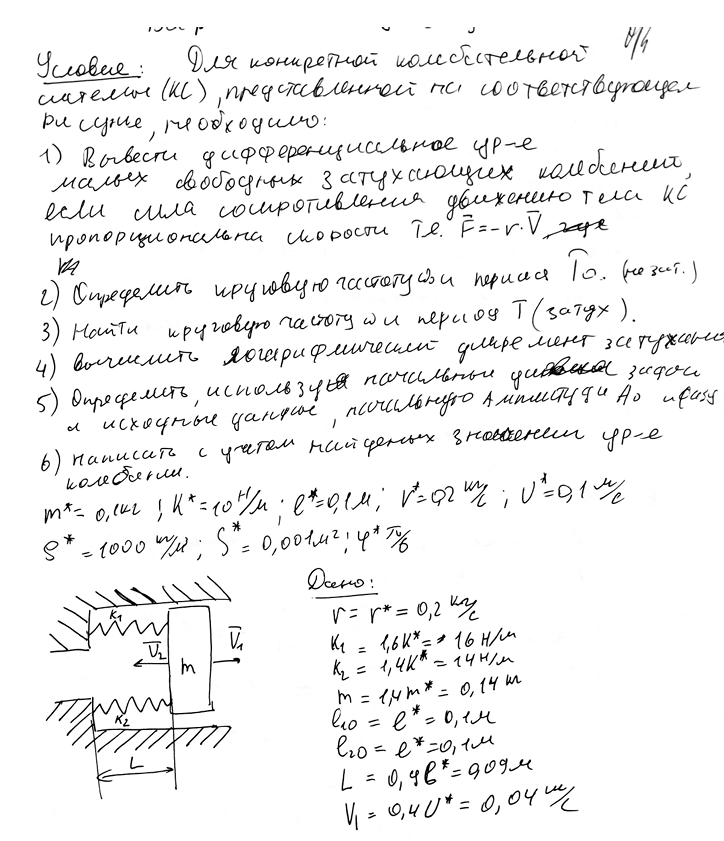 Условие: Для конкретной колебательной
системы (КС), представленной на соответствующем
рисунке, необходимо:
1) Вывести дифференциальное ур-е
малых свободных затухающих колебаний,
если сила сопротивления движению тела КС
пропорциональна скорости т.е. F̄=-r·V̄,
2) Определить круговую частоту ω и период T₀. (незат.)
3) Найти круговую частоту ω и период T (затух).
4) Вычислить логарифмический декремент затухания
5) Определить, используя начальные условия задачи
и исходные данные, начальную амплитуду A₀ и фазу
6) Написать с учётом найденых значений ур-е
колебаний.
m* = 0,1кг ; K* = 10 Н/м ; l* = 0,1м ; r* = 0,2 кг/с ; U* = 0,1 м/с
S* = 0,001м² ; φ* π/6
Дано:
r = r* = 0,2 кг/с
K₁ = 1,6K* = 16 Н/м
K₂ = 1,4K* = 14 Н/м
m = 1,4m* = 0,14 кг
l₁₀ = l* = 0,1м
l₂₀ = l* = 0,1м
L = 0,9l* = 0,09м
V₁ = 0,4U* = 0,04 м/с
K₁
V̄₂
m
V̄₁
K₂
L